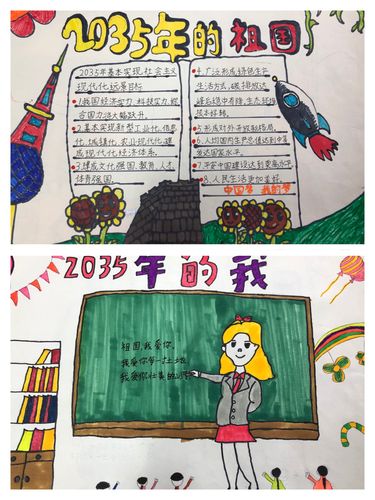 2035年的祖国
2035年基本实现社会主义
现代化远景目标
1.我国经济实力、科技实力、综
合国力活大幅跃升。
2.基本实现新型工业化、信息
化、城镇化、农业现代化,建
成现代化经济体系。
3.建成文化强国、教育、人才、
体育强国。
4.广泛形成绿色生产
生活方式,碳排放达
峰后稳中有降,生态环境
根本好转。
5.形成对外开放新格局。
6.人均国内生产总值达到中等
发达国家水平。
7.平安中国建设达到更高水平
8.人民生活更加美好。
中国梦 我的梦
2035年的我
祖国,我爱你,
我爱你每一寸土地
我爱你壮美的山河